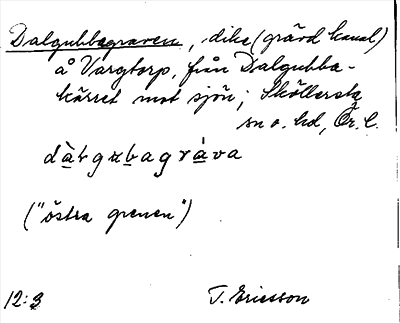 Dalgubbagraven, dike (grävd kanal)
å Vargtorp, från Dalgubba-
kärret mot sjön; Sköllersta
sn o. hd, Ör. l.
dàbgubagráva
("östra grenen")
12:3 T. Ericsson